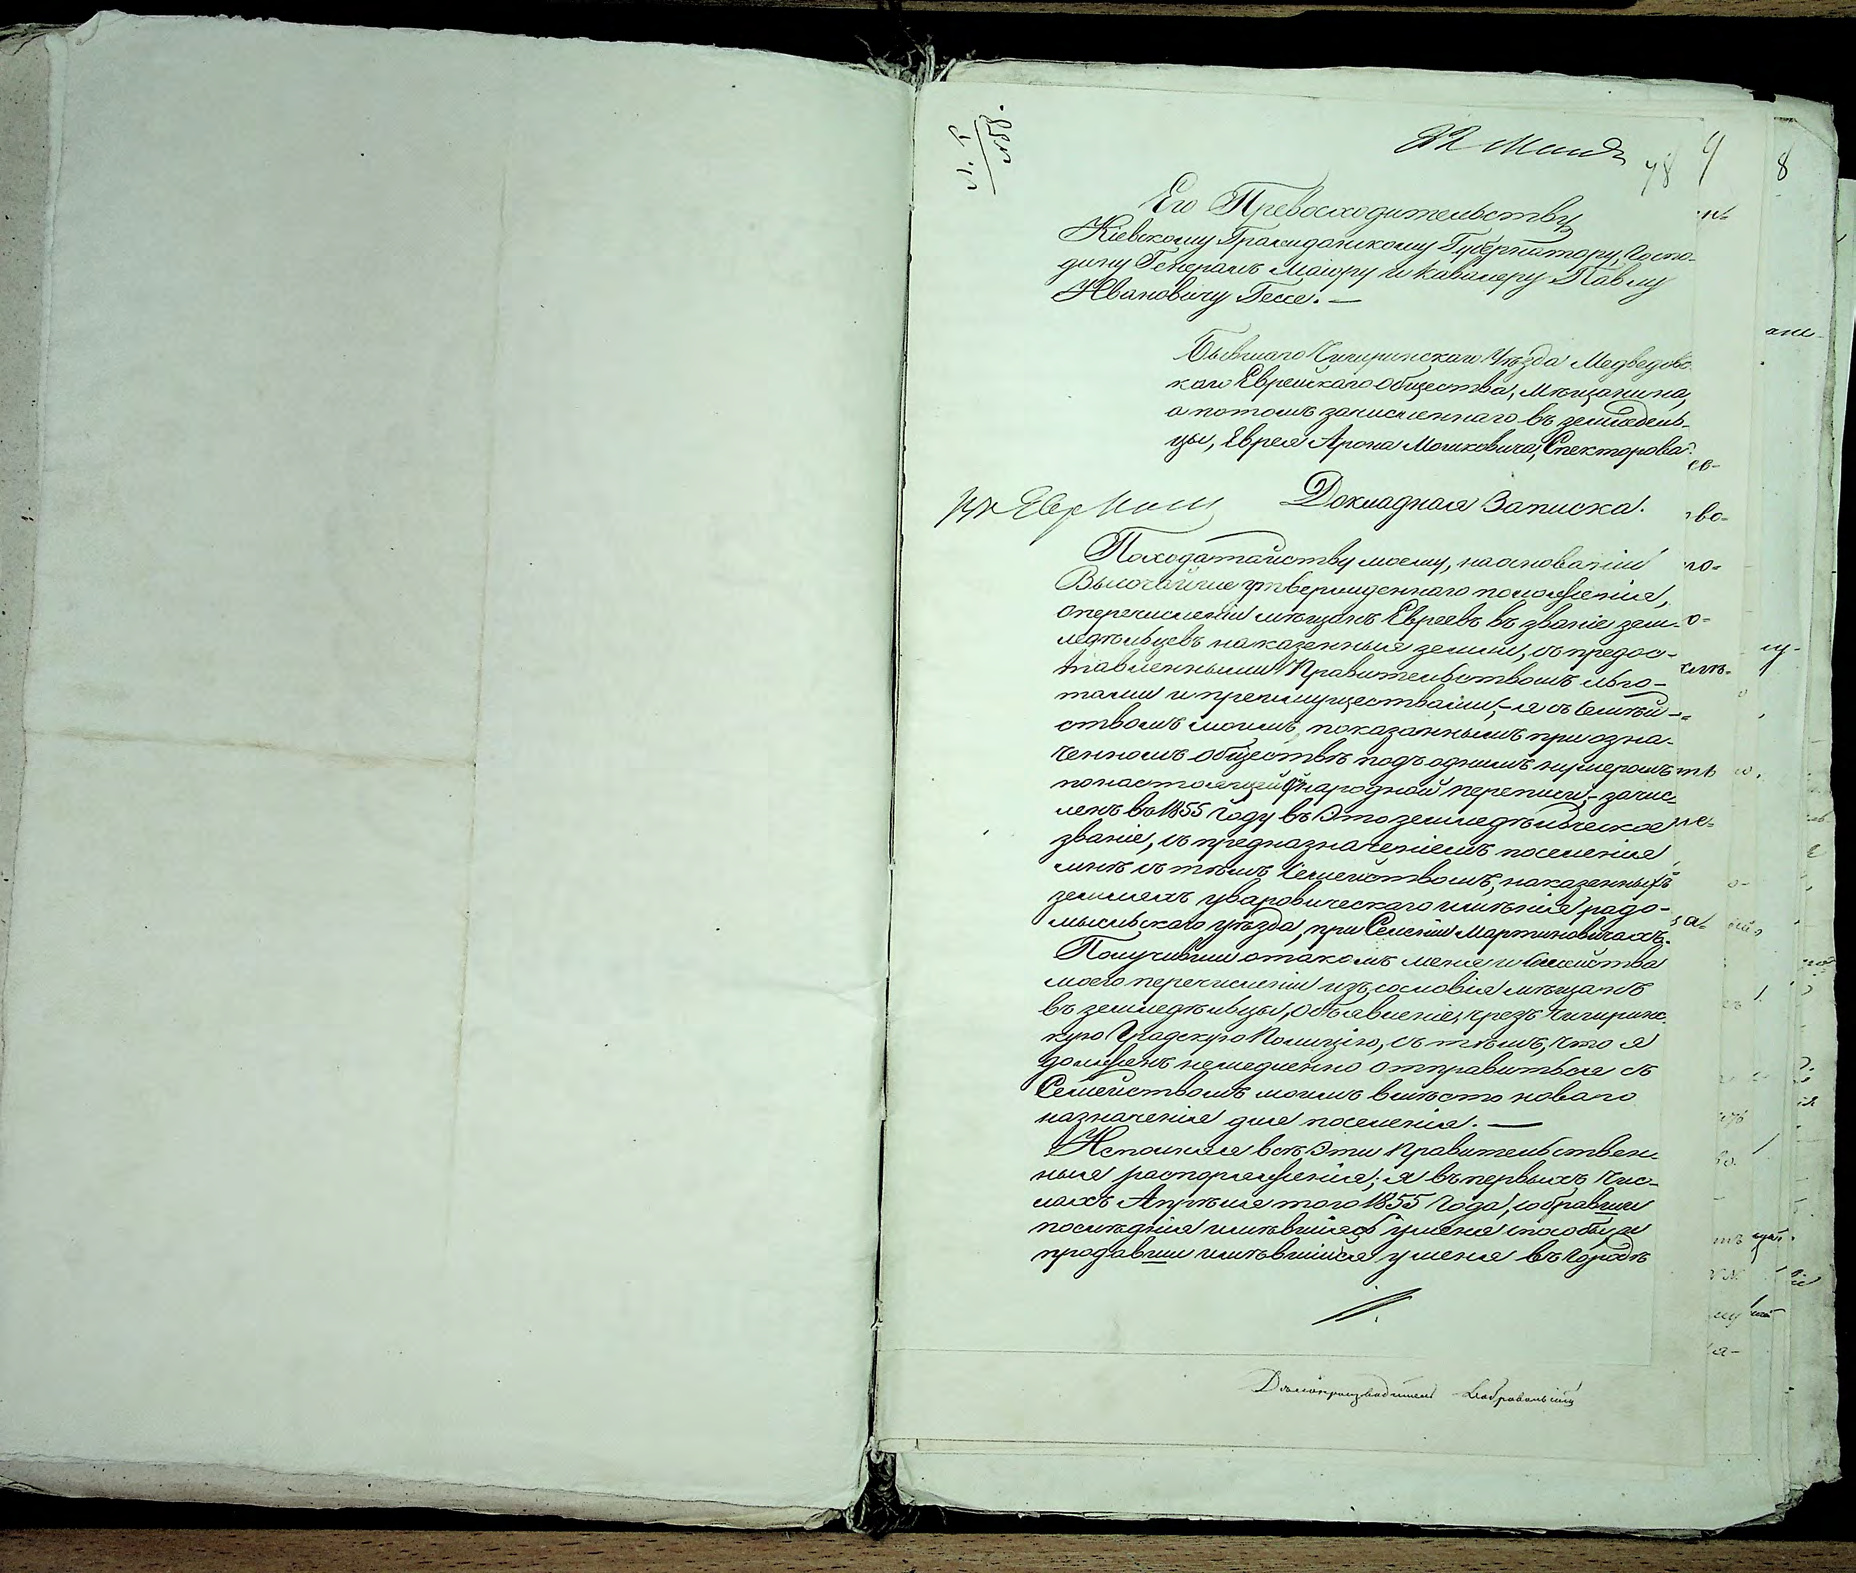 22 Мая
Его Превосходительству
Кіевскому Гражданскому Губернатору, Госпо-
дину Генералъ Маіору и Кавалеру Павлу
Ивановичу Гессе. —
Бывшаго Чигиринскаго Уѣзда Медведовс
каго Еврейскаго Общества, мѣщанина,
а потомъ зачисленнаго въ земледѣль-
цы, Еврея Арона Мошковича Спекторова.
Докладная Записка.
По ходатайству моему, на основаніи
Высочайше утвержденнаго положенія,
о перечисленіи мѣщанъ Евреевъ въ званіе зем-
ледѣльцевъ на казенныя земли, съ предос-
тавленными Правительствомъ льго-
тами и преимуществами, — я съ Семей-
ствомъ моимъ, показаннымъ при озна-
ченномъ обществѣ подъ однимъ нумеромъ
по настоящей народной переписи, — зачис-
ленъ въ 1855 Году въ Это земледѣльческое
званіе, съ предназначеніемъ поселенія
мнѣ съ тѣмъ Семействомъ, на казенныхъ
земляхъ уваровическаго имѣнія радо-
мысльскаго уѣзда, при Селеніи Мартиновичахъ.
Получивши о такомъ меня и Семейства
моего перечисленіи изъ сословія мѣщанъ
въ земледѣльцы, объявленіе, чрезъ Чигиринс-
кую Градскую Полицію, съ тѣмъ, что я
долженъ немедленно отправиться съ
Семействомъ моимъ вмѣсто новаго
назначенія для поселенія. —
Исполняя всѣ Эти Правительствен-
ныя распоряженія; я въ первыхъ Чис-
лахъ Апрѣля того 1855 Года, собравши
послѣднія имѣвшіяся у меня способы, и
продавши имѣвшійся у меня въ Городѣ
Дѣлопроизводитель